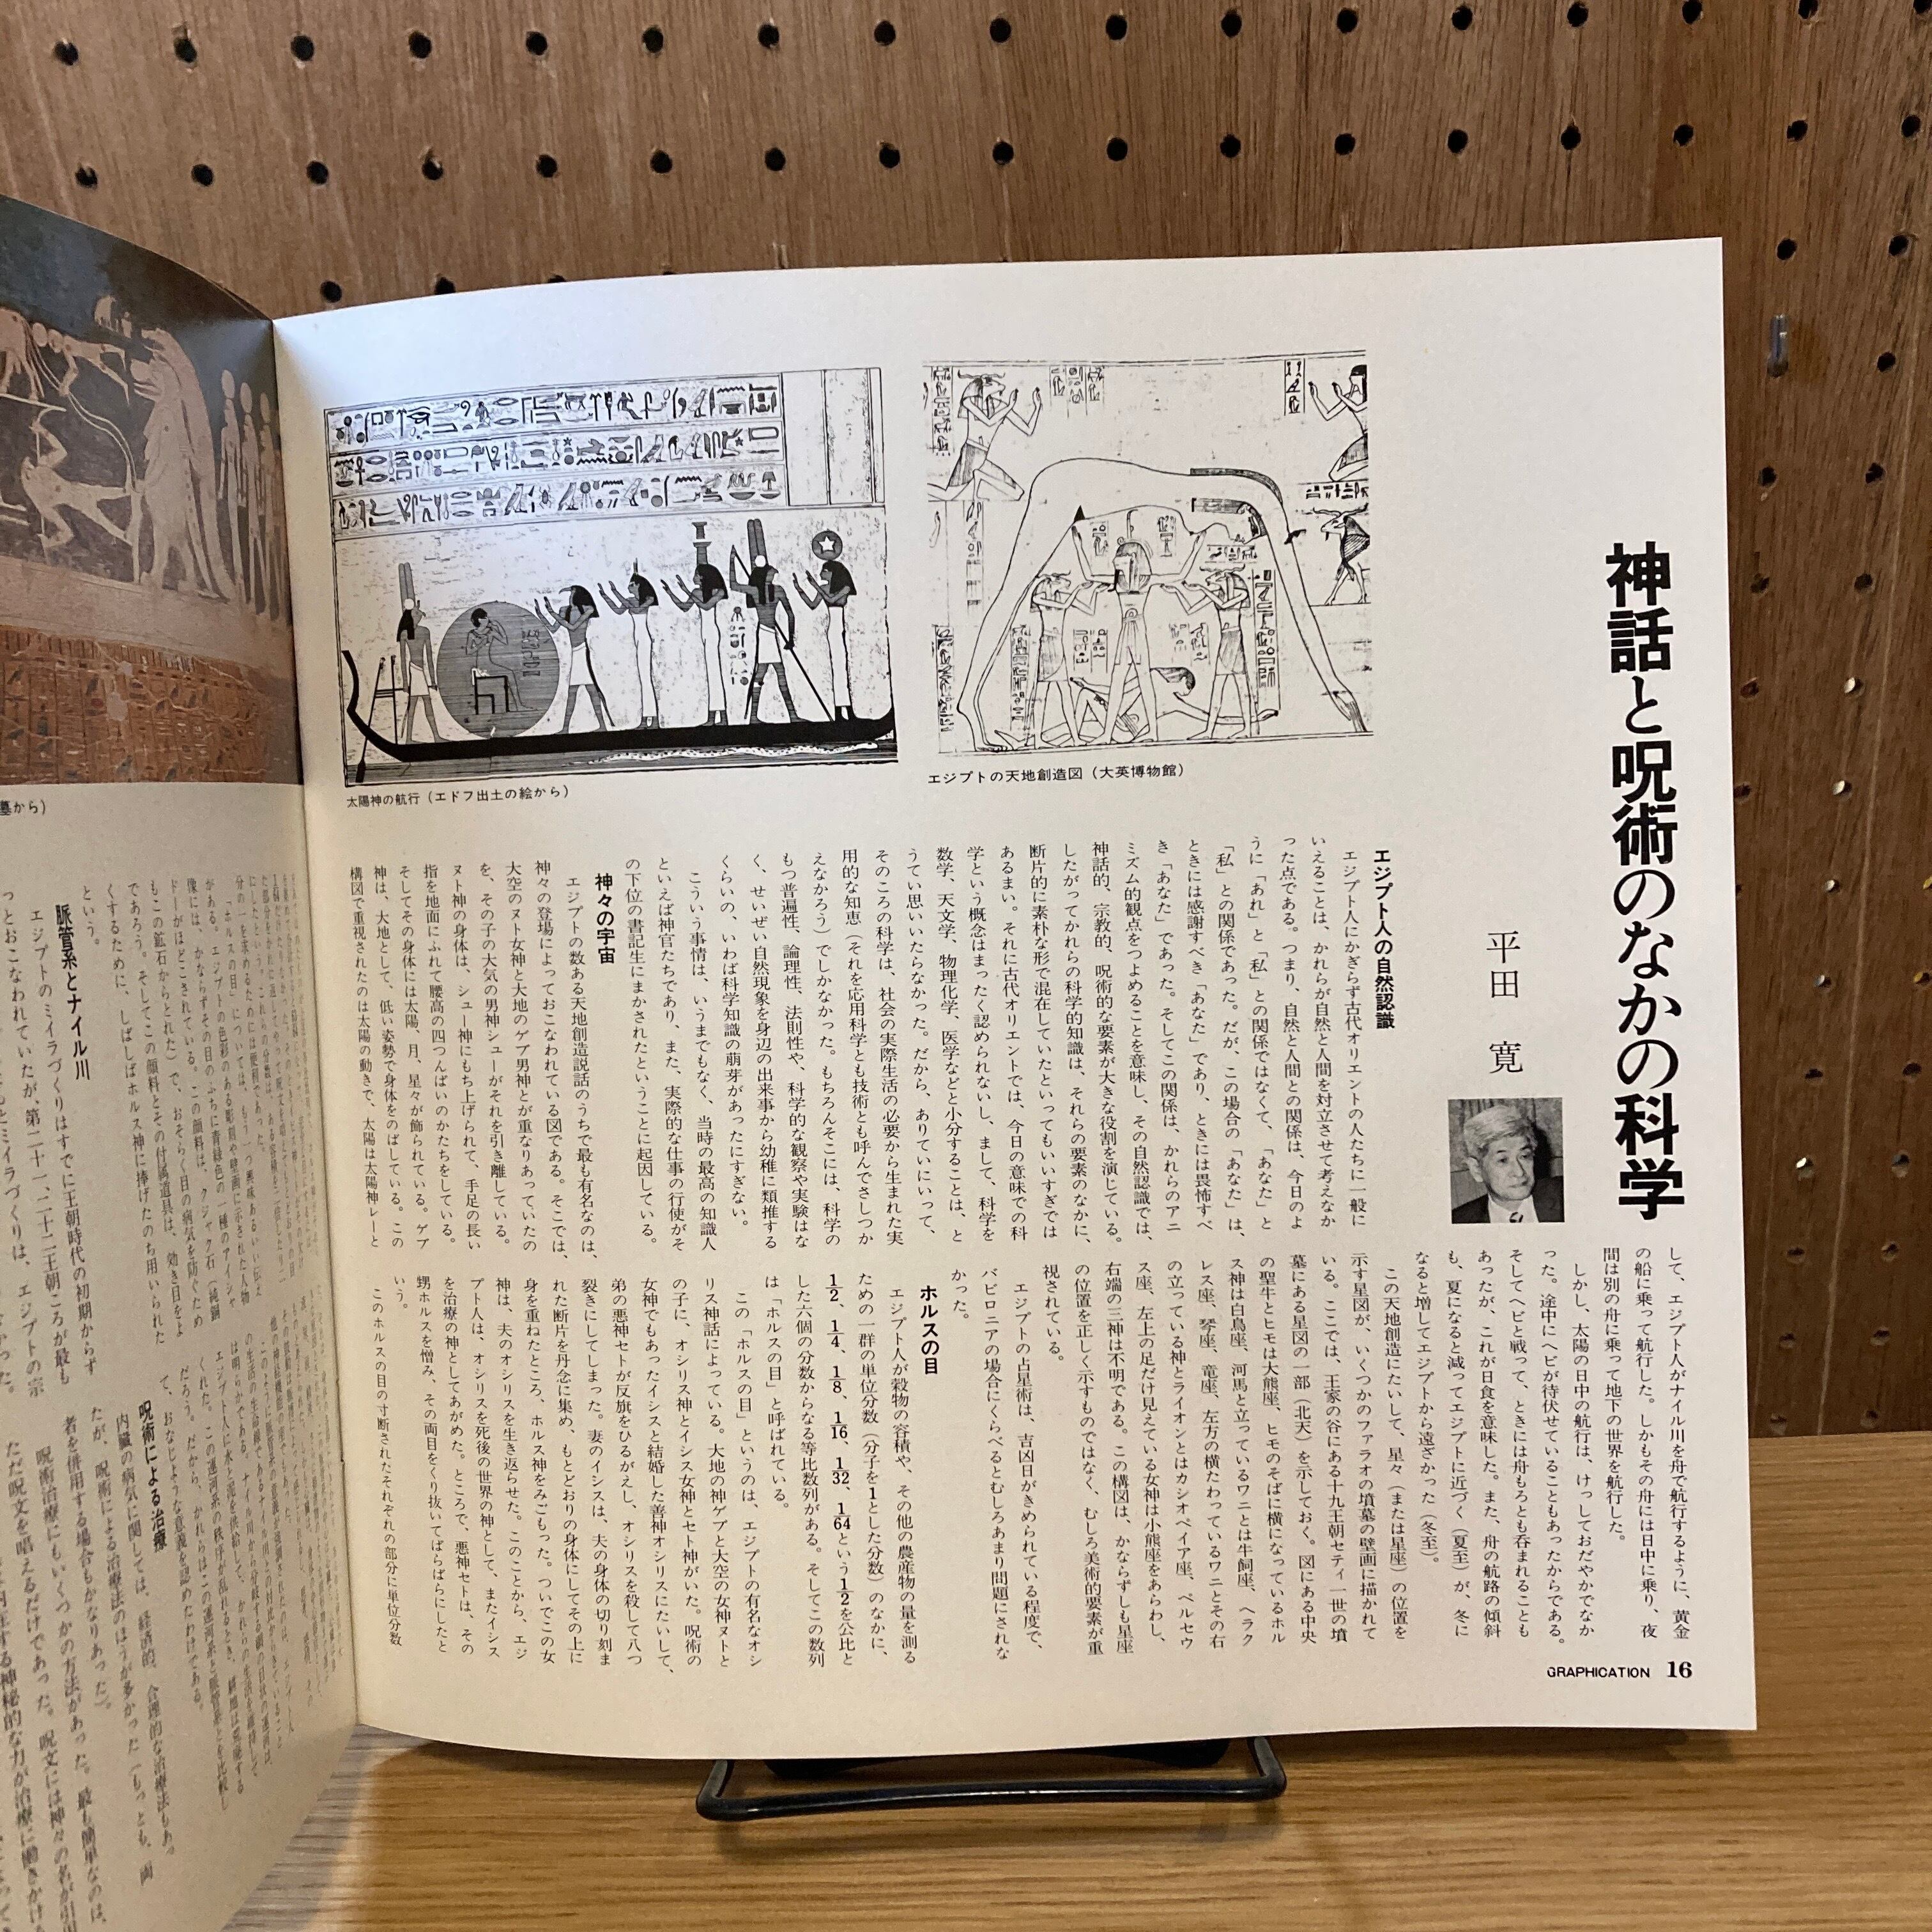 神話と呪術のなかの科学
平田 寛
エジプトの天地創造図（大英博物館）
太陽神の航行（エドフ出土の絵から）
エジプト人の自然認識
エジプト人にかぎらず古代オリエントの人たちに一般に
いえることは、かれらが自然と人間を対立させて考えなか
った点である。つまり、自然と人間との関係は、今日のよ
うに「あれ」と「私」との関係ではなくて、「あなた」と
「私」との関係であった。だが、この場合の「あなた」は、
ときには感謝すべき「あなた」であり、ときには畏怖すべ
き「あなた」であった。そしてこの関係は、かれらのアニ
ミズム的観点をつよめることを意味し、その自然認識では、
神話的、宗教的、呪術的な要素が大きな役割を演じている。
したがってかれらの科学的知識は、それらの要素のなかに、
断片的に素朴な形で混在していたといってもいいすぎでは
あるまい。それに古代オリエントでは、今日の意味での科
学という概念はまったく認められないし、まして、科学を
数学、天文学、物理化学、医学などと小分することは、と
うてい思いいたらなかった。だから、ありていにいって、
そのころの科学は、社会の実際生活の必要から生まれた実
用的な知恵（それを応用科学とも技術とも呼んでさしつか
えなかろう）でしかなかった。もちろんそこには、科学の
もつ普遍性、論理性、法則性や、科学的な観察や実験はな
く、せいぜい自然現象を身辺の出来事から幼稚に類推する
くらいの、いわば科学知識の萌芽があったにすぎない。
こういう事情は、いうまでもなく、当時の最高の知識人
といえば神官たちであり、また、実際的な仕事の行使がそ
の下位の書記生にまかされたということに起因している。
神々の宇宙
エジプトの数ある天地創造説話のうちで最も有名なのは、
神々の登場によっておこなわれている図である。そこでは、
大空のヌト女神と大地のゲブ男神とが重なりあっていたの
を、その子の大気の男神シューがそれを引き離している。
ヌト神の身体は、シュー神にもち上げられて、手足の長い
指を地面にふれて腰高の四つんばいのかたちをしている。
そしてその身体には太陽、月、星々が飾られている。ゲブ
神は、大地として、低い姿勢で身体をのばしている。この
構図で重視されたのは太陽の動きで、太陽は太陽神レーと
して、エジプト人がナイル川を舟で航行するように、黄金
の船に乗って航行した。しかもその舟には日中に乗り、夜
間は別の舟に乗って地下の世界を航行した。
しかし、太陽の日中の航行は、けっしておだやかでなか
った。途中にヘビが待伏せていることもあったからである。
そしてヘビと戦って、ときには舟もろとも呑まれることも
あったが、これが日食を意味した。また、舟の航路の傾斜
も、夏になると減ってエジプトに近づく（夏至）が、冬に
なると増してエジプトから遠ざかった（冬至）。
この天地創造にたいして、星々（または星座）の位置を
示す星図が、いくつかのファラオの墳墓の壁画に描かれて
いる。ここでは、王家の谷にある十九王朝セティ一世の墳
墓にある星図の一部（北天）を示しておく。図にある中央
の聖牛とヒモは大熊座、ヒモのそばに横になっているホル
ス神は白鳥座、河馬と立っているワニとは牛飼座、ヘラク
レス座、琴座、竜座、左方の横たわっているワニとその右
の立っている神とライオンとはカシオペイア座、ペルセウ
ス座、左上の足だけ見えている女神は小熊座をあらわし、
右端の三神は不明である。この構図は、かならずしも星座
の位置を正しく示すものではなく、むしろ美術的要素が重
視されている。
エジプトの占星術は、吉凶日がきめられている程度で、
バビロニアの場合にくらべるとむしろあまり問題にされな
かった。
ホルスの目
エジプト人が穀物の容積や、その他の農産物の量を測る
ための一群の単位分数（分子を1とした分数）のなかに、
1/2、1/4、1/8、1/16、1/32、1/64という1/2を公比と
した六個の分数からなる等比数列がある。そしてこの数列
は「ホルスの目」と呼ばれている。
この「ホルスの目」というのは、エジプトの有名なオシ
リス神話によっている。大地の神ゲブと大空の女神ヌトと
の子に、オシリス神とイシス女神とセト神がいた。呪術の
女神でもあったイシスと結婚した善神オシリスにたいして、
弟の悪神セトが反旗をひるがえし、オシリスを殺して八つ
裂きにしてしまった。妻のイシスは、夫の身体の切り刻ま
れた断片を丹念に集め、もとどおりの身体にしてその上に
身を重ねたところ、ホルス神をみごもった。ついでこの女
神は、夫のオシリスを生き返らせた。このことから、エジ
プト人は、オシリスを死後の世界の神として、またイシス
を治療の神としてあがめた。ところで、悪神セトは、その
甥ホルスを憎み、その両目をくり抜いてばらばらにしたと
いう。
このホルスの目の寸断されたそれぞれの部分に単位分数
GRAPHICATION 16
墓から）
「ホルスの目」については、もう一つ興味あるいい伝え
がある。エジプトの色彩のある彫刻や壁画に示された人物
像には、かならずその目のふちに青緑色の一種のアイシャ
ドーがほどこされている。この顔料は、クジャク石（純銅
もこの鉱石からとれた）で、おそらく目の病気を防ぐため
であろう。そしてこの顔料とその付属道具は、効き目をよ
くするために、しばしばホルス神に捧げたのち用いられた
という。
脈管系とナイル川
エジプトのミイラづくりはすでに王朝時代の初期からず
っとおこなわれていたが、第二十一、二十二王朝ころが最も
呪術による治療
内臓の病気に関しては、経済的、合理的な治療法もあっ
たが、呪術による治療法のほうが多かった（もっとも、両
者を併用する場合もかなりあった）。
呪術治療にもいくつかの方法があった。最も簡単なのは、
ただ呪文を唱えるだけであった。呪文には神々の名が引用